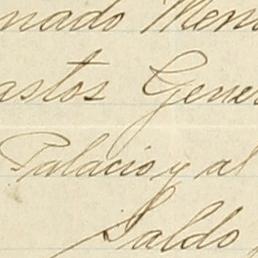 nado Mens
astos Gener
Palacio y al
Saldo